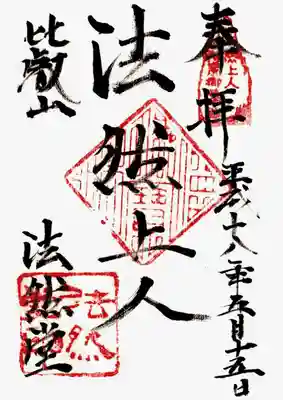 奉拝
平成十八年五月十五日
法然上人
比叡山
法然堂